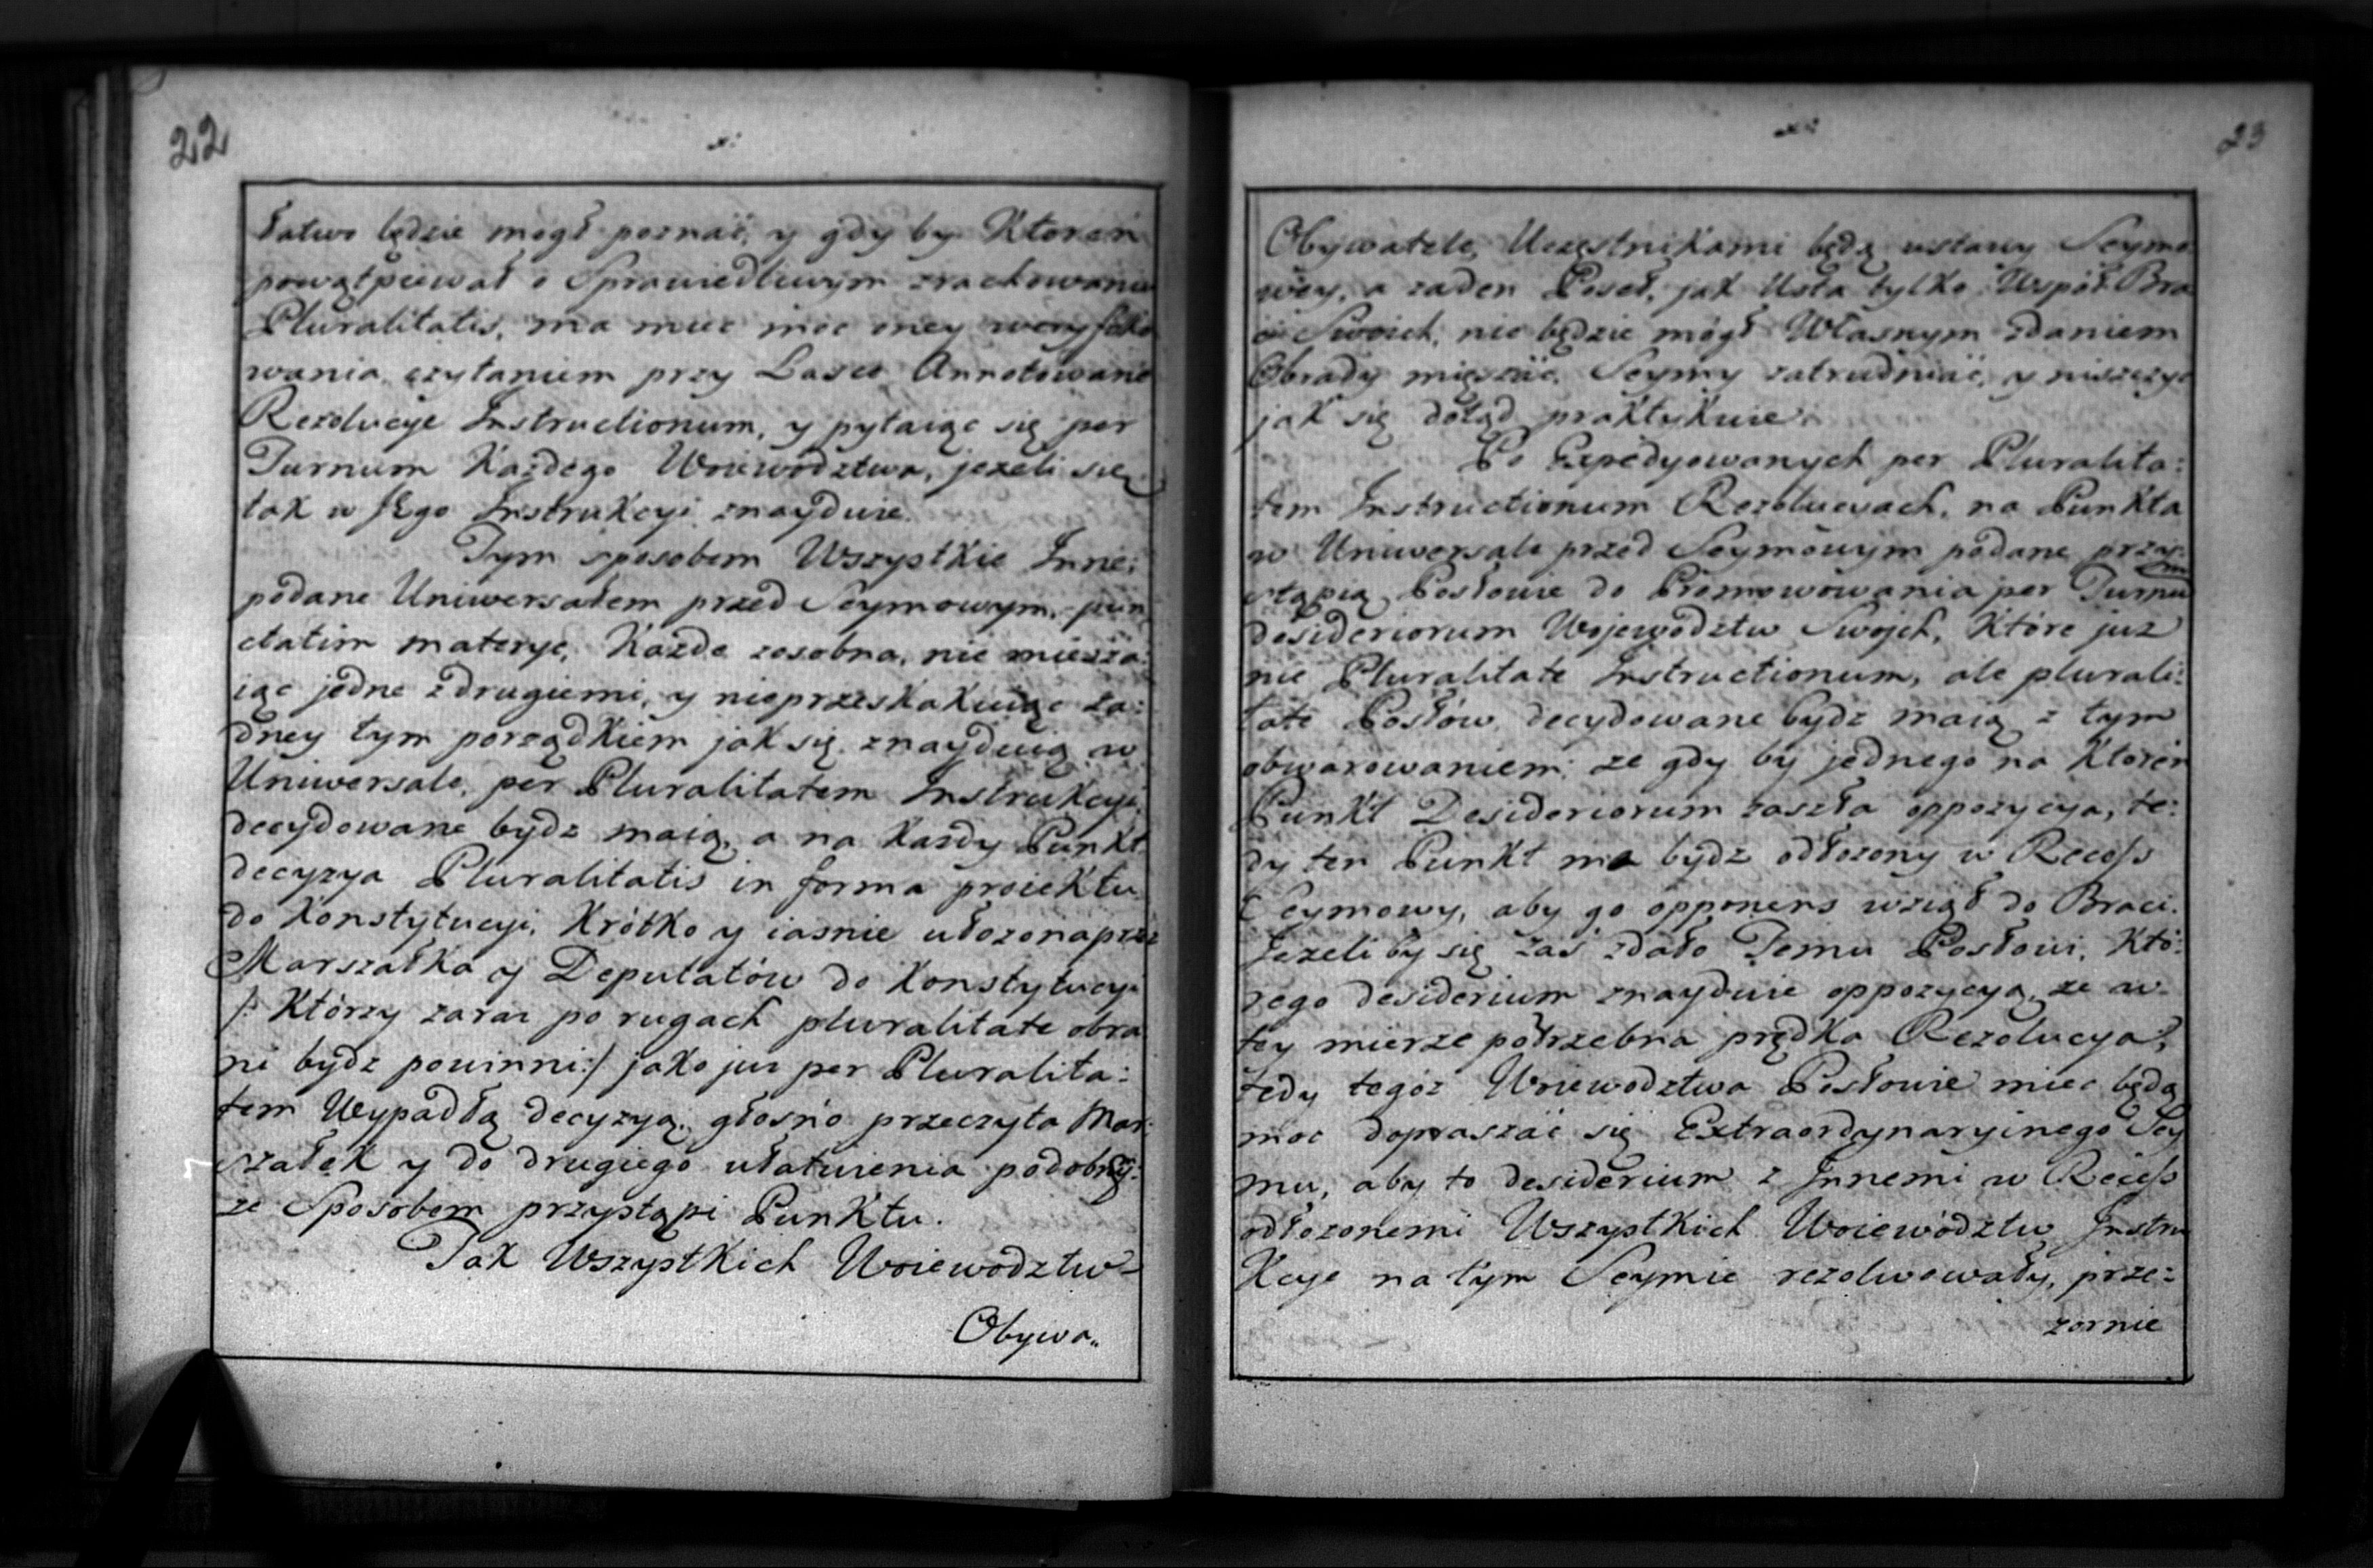 22
łatwo będzie mógł poznać, y gdy by Któren
powątpiewał o Sprawiedliwym zrachowaniu
Pluralitatis, ma mieć moc oney weryfiko
wania, czytaniem przy Lasce Annotowane
Rezolucye Instructionum, y pytaiąc się per
Turnum Każdego Woiewództwa, jezeli się
tak w Jego Instrukcyi znayduie.
Tym sposobem Wszystkie Inne,
podane Uniwersałem przed Seymowym, pun
ctatim materye, Kazda zosobna, nie miesza:
iąc jedne zdrugiemi, y nieprzeskakuiąc ża:
dney tym porządkiem jak się znayduią w
Uniwersale, per Pluralitatem Instrukcyi,
decydowane bydz maią, a na Kazdy Punkt
decyzya Pluralitatis in forma proiektu
do Konstytucyi, Krótko y iasnie ułozona przez
Marszałka y Deputatów do Konstytucyi
/: Którzy zaraz po rugach pluralitate obra
ni bydz powinni :/ jako juz per Pluralita:
tem Wypadłą decyzyą, głosno przeczyta Mar:
szałek y do drugiego ułatwienia podobny:
ze Sposobem przystąpi Punktu.
Tak Wszystkich Woiewodztw
Obywa„
23
Obywatele, Uczęstnikami będą ustawy Seymo
wey, a zaden Poseł, jak Usta tylko Współ Bra
ci Swoich, nie będzie mógł Własnym zdaniem
Obrady mięszać, Seymy zatrudniać, y niszczyć
jak się dotąd praktykuie.
Po Expedyowanych per Pluralita:
tem Instructionum Rezolucyach, na Punkta
w Uniwersale przed Seymowym podane przy:
stąpią Posłowie do Promowowania per Turnum
desideriorum Wojewodztw Swojch, Które juz
nie Pluralitate Instructionum, ale plurali:
tate Posłów decydowane bydz maią z tym
obwarowaniem: ze gdy by jednego na Któren
Punkt Desideriorum zaszła oppozycya, te:
dy ten Punkt ma bydz odłozony w Recess
Seymowy, aby go opponens wziął do Braci.
Jezeli by się zaś zdało Temu Posłowi, Któ:
rego desiderium znayduie oppozycyą, ze w
tey mierze potrzebna prędka Rezolucya,
tedy tegóz Woiewodztwa Posłowie miec będą
moc dopraszać się Extraordynaryinego Sey
mu, aby to desiderium z Innemi w Recess
odłozonemi Wszystkich Woiewództw Instru
Kcye na tym Seymie rezolwowały, prze:
zornie